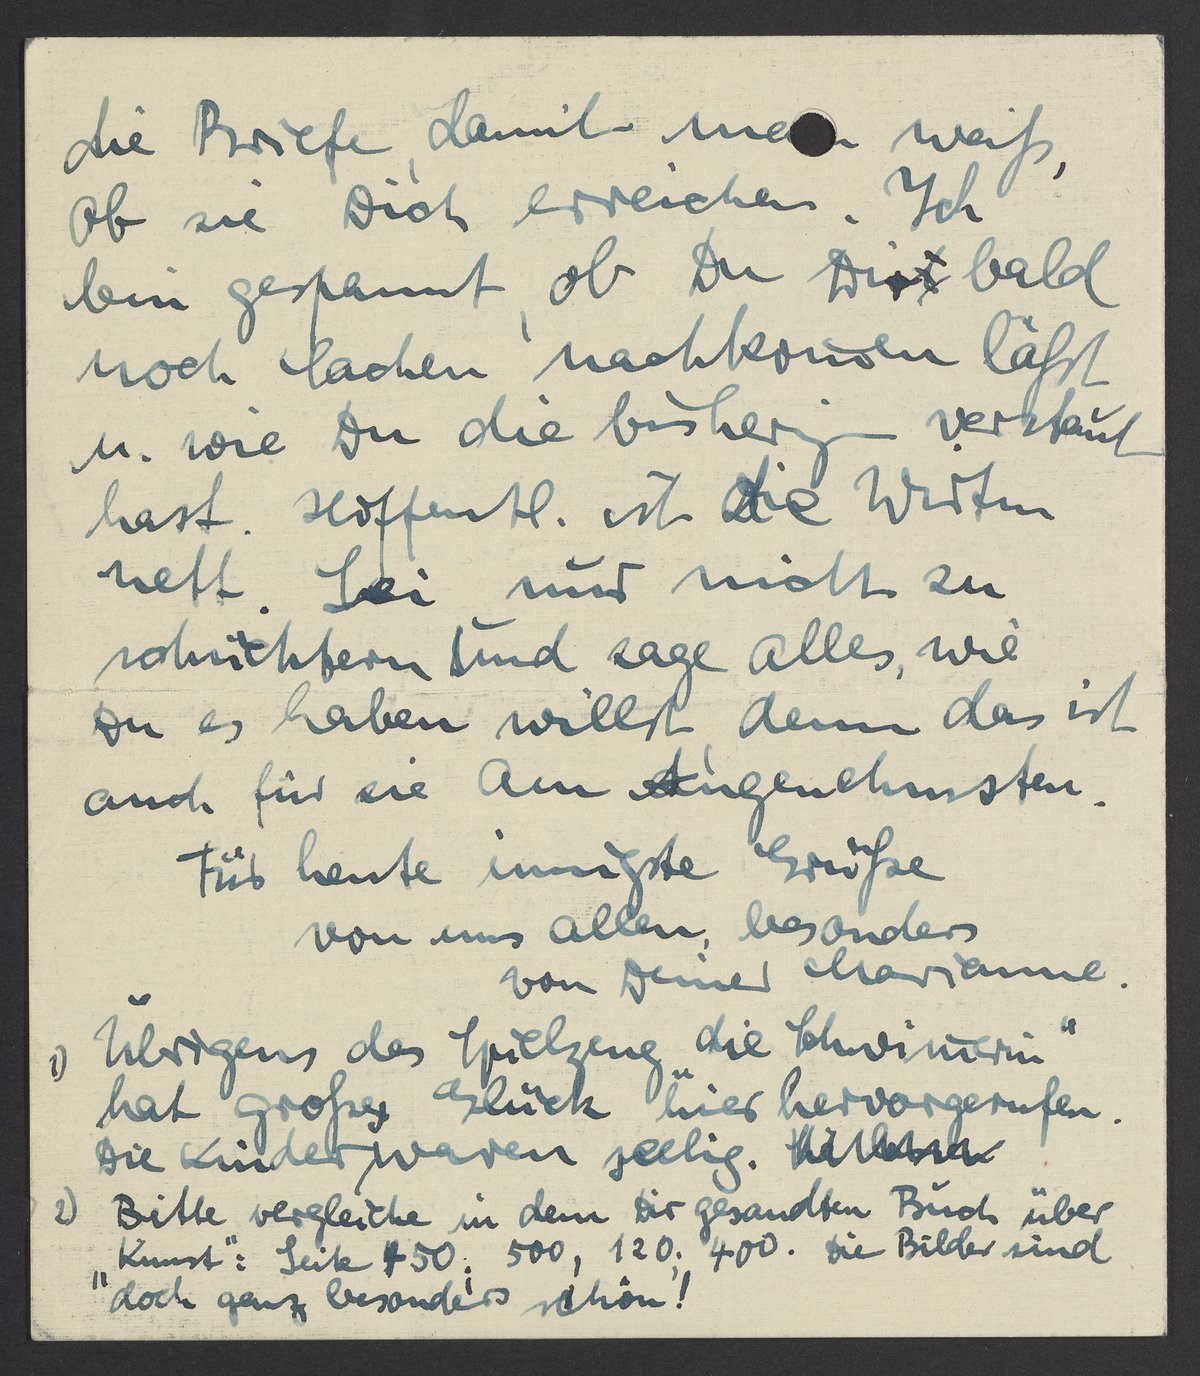 die Briefe, damit man weiß,
ob sie Dich erreichen. Ich
bin gespannt, ob Du Dir bald
noch Sachen nachkommen läßt
u. wie Du die bisherig verstaut
hast. Hoffentl. ist die Wirtin
nett. Sei nur nicht zu
schüchtern und sage alles, wie
Du es haben willst, denn das ist
auch für sie am Angenehmsten.
Für heute innigste Grüße
von uns allen, besonders
von Deiner Marianne.
1) Übrigens das Spielzeug „die Schwimerin“
hat großes Glück hier hervorgerufen.
Die Kinder waren seelig.
2) Bitte vergleiche in dem Dir gesandten Buch über
„Kunst“: Seite 450; 500, 120; 400. Die Bilder sind
doch ganz besonders schön!